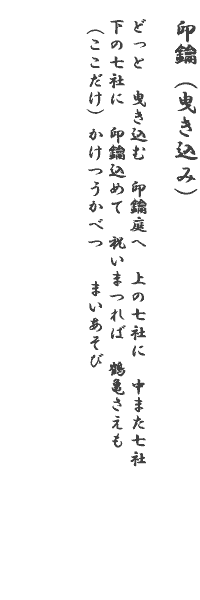 印鑰（曳き込み）
どっと　曳き込む　印鑰庭へ　上の七社に　中また七社
下の七社に　印鑰込めて　祝いまつれば　鶴亀さえも
（ここだけ）かけつうかべつ　　まいあそび